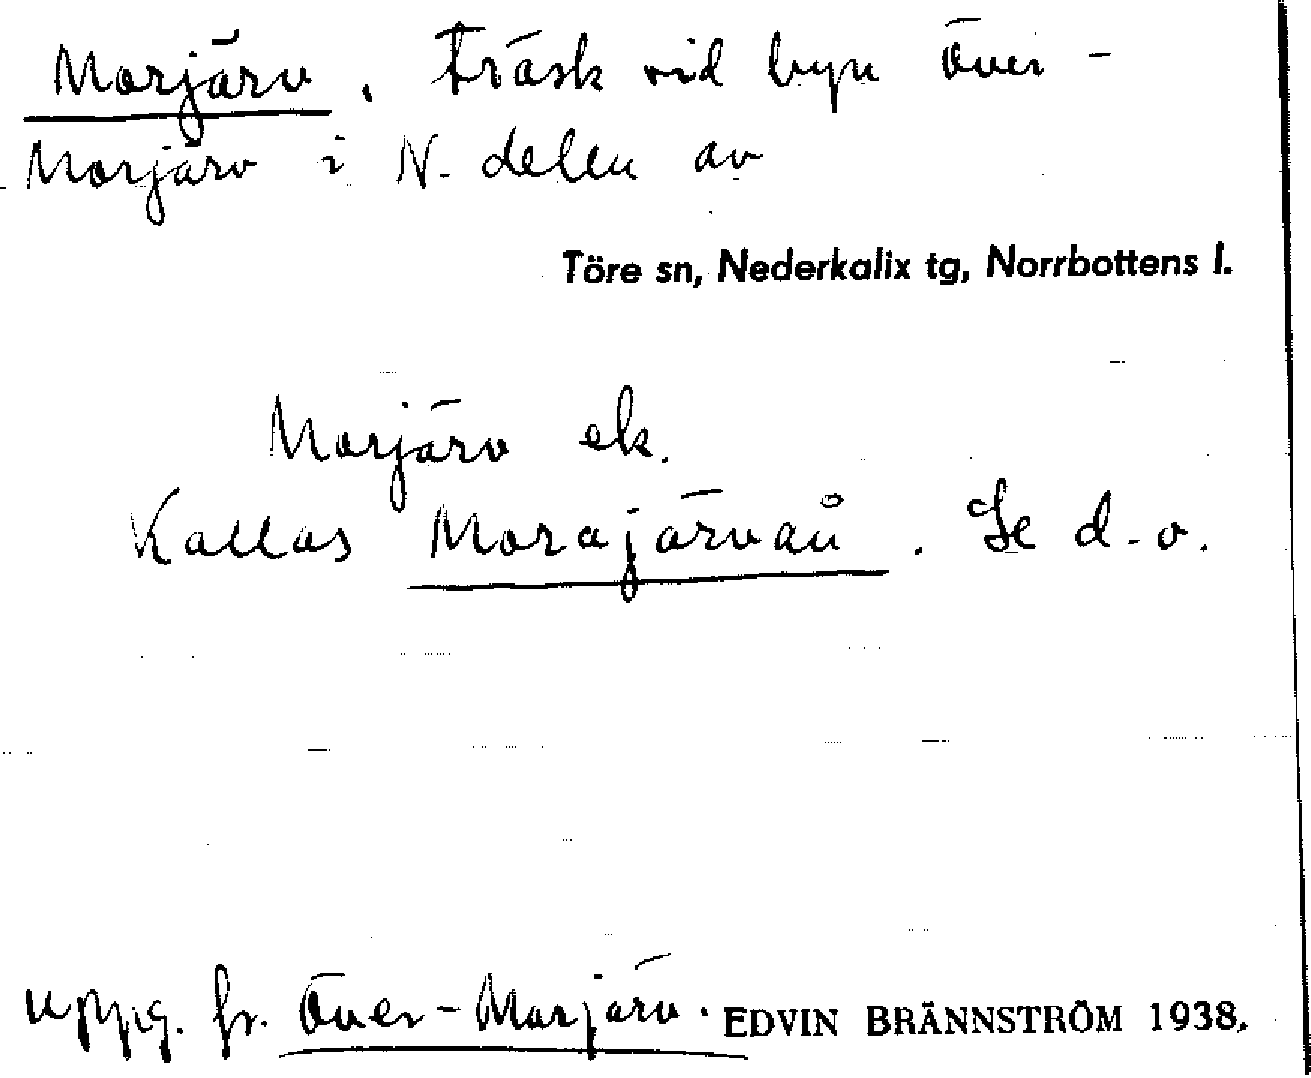 Morjärv. Träsk vid byn Över-
Morjärv i N. delen av
Töre sn, Nederkalix tg, Norrbottens l.
Morjärv ek.
Kallas Morajärvåu. Se d. o.
uppg. fr. Över-Morjärv. EDVIN BRÄNNSTRÖM 1938.